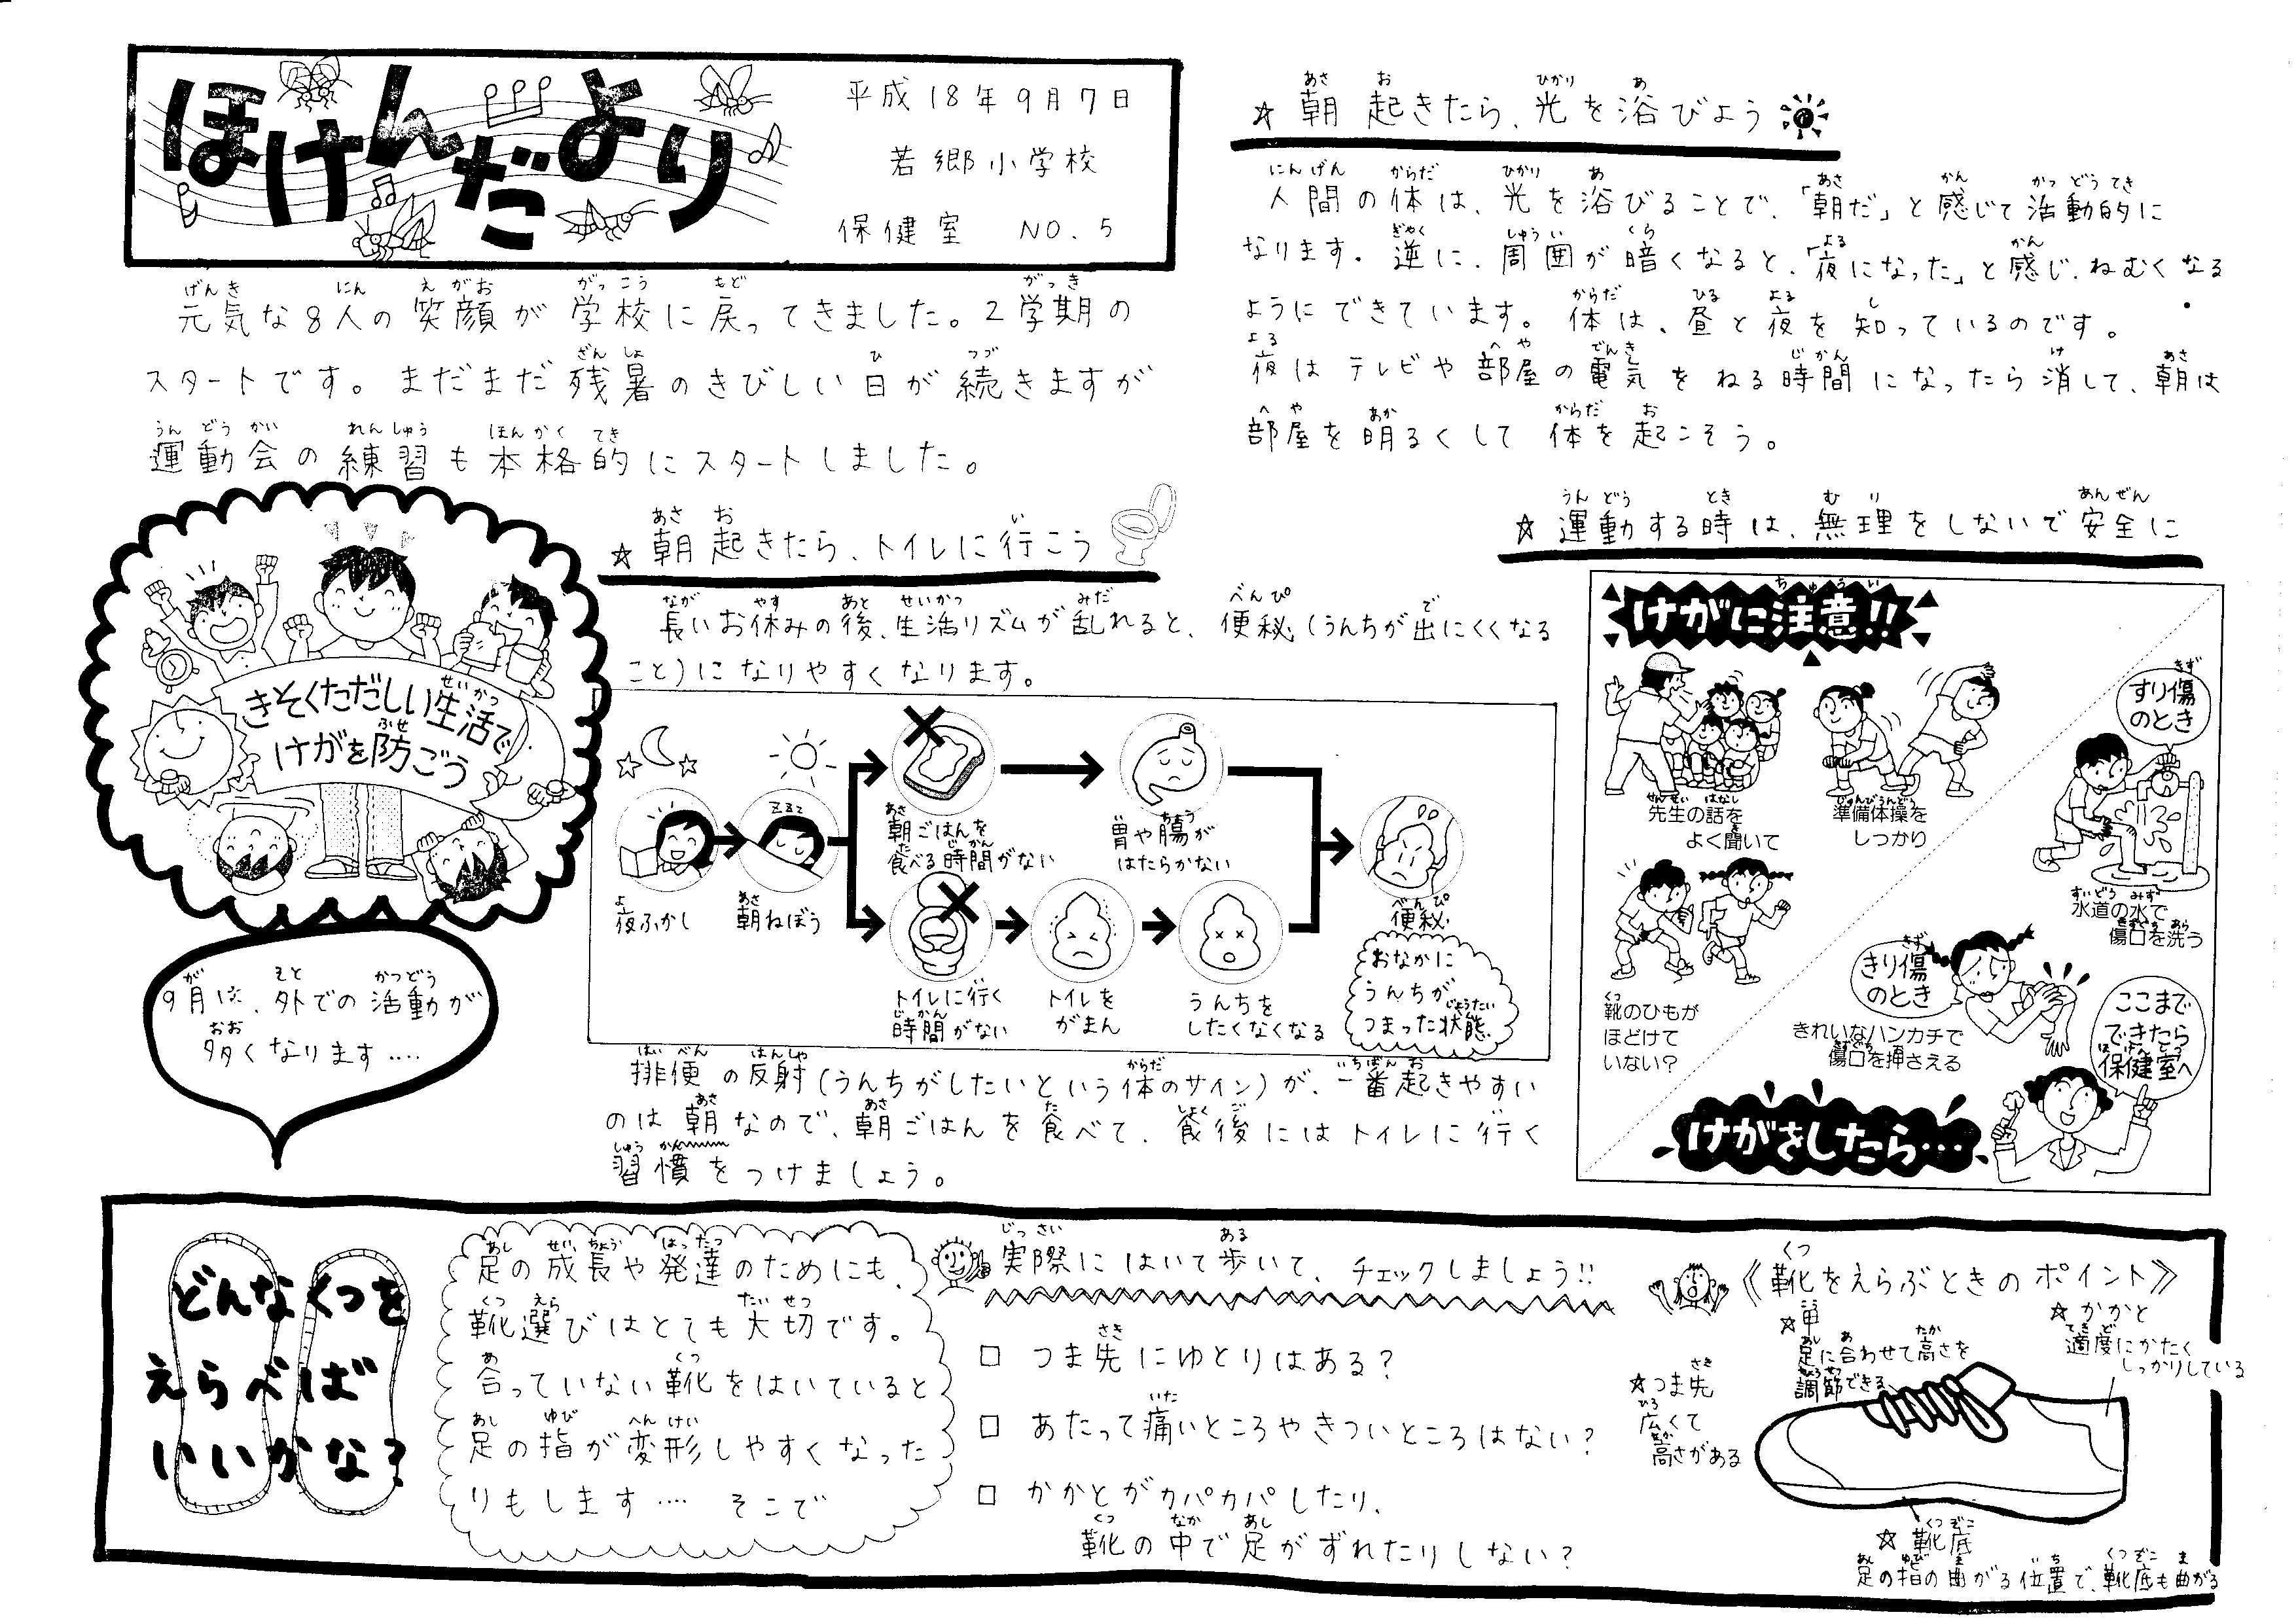 ほけんだより
平成18年9月7日
若郷小学校
保健室 NO.5
元気な8人の笑顔が学校に戻ってきました。2学期の
スタートです。まだまだ残暑のきびしい日が続きますが
運動会の練習も本格的にスタートしました。
きそくただしい生活で
けがを防ごう
9月は、外での活動が
多くなります....
☆朝起きたら、トイレに行こう
長いお休みの後、生活リズムが乱れると、便秘(うんちが出にくくなる
こと)になりやすくなります。
夜ふかし
朝ねぼう
朝ごはんを
食べる時間がない
胃や腸が
はたらかない
トイレに行く
時間がない
トイレを
がまん
うんちを
したくなくなる
便秘
おなかに
うんちが
つまった状態
排便の反射(うんちがしたいという体のサイン)が、一番起きやすい
のは朝なので、朝ごはんを食べて、食後にはトイレに行く
習慣をつけましょう。
☆朝起きたら、光を浴びよう
人間の体は、光を浴びることで、「朝だ」と感じて活動的に
なります。逆に、周囲が暗くなると、「夜になった」と感じ、ねむくなる
ようにできています。体は、昼と夜を知っているのです。
夜はテレビや部屋の電気をねる時間になったら消して、朝は
部屋を明るくして体を起こそう。
☆運動する時は、無理をしないで安全に
けがに注意!!
先生の話を
よく聞いて
準備体操を
しっかり
靴のひもが
ほどけて
いない?
すり傷
のとき
水道の水で
傷口を洗う
きり傷
のとき
きれいなハンカチで
傷口を押さえる
ここまで
できたら
保健室へ
けがをしたら…
どんなくつを
えらべば
いいかな?
足の成長や発達のためにも、
靴選びはとても大切です。
合っていない靴をはいていると
足の指が変形しやすくなった
りもします.... そこで
実際にはいて歩いて、チェックしましょう!!
□ つま先にゆとりはある?
□ あたって痛いところやきついところはない?
□ かかとがカパカパしたり、
靴の中で足がずれたりしない?
《靴をえらぶときのポイント》
☆甲
足に合わせて高さを
調節できる
☆かかと
適度にかたく
しっかりしている
☆つま先
広くて
高さがある
☆靴底
足の指の曲がる位置で、靴底も曲がる